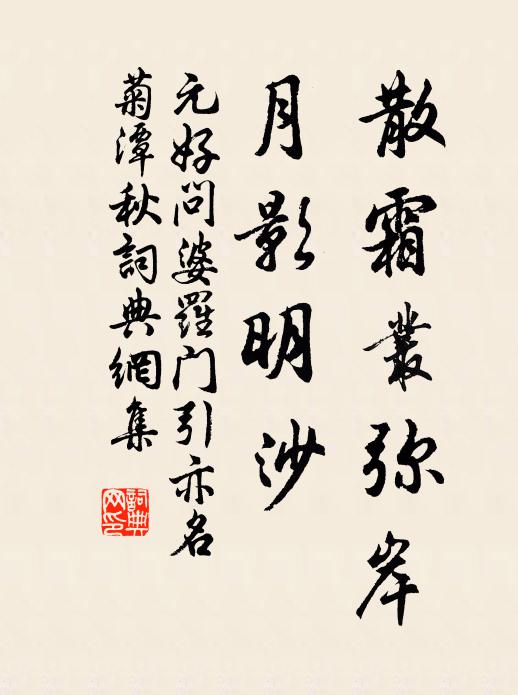 散霜叢弥岸
月影明沙
元好问婆羅门引亦名
菊潭秋詞典網集
詞典网印